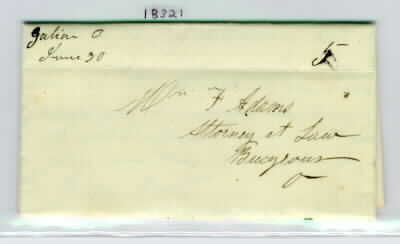 18321
Galion O
June 30
5
Wm F Adams
Attorney at Law
Bucyrous
O